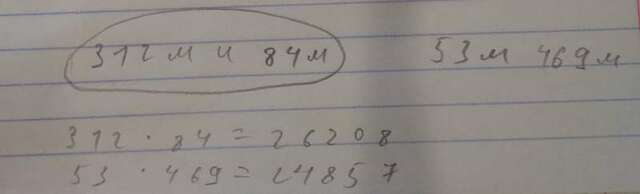 312 м и 84 м 53 м 469 м
312 · 84 = 26208
53 · 469 = 24857